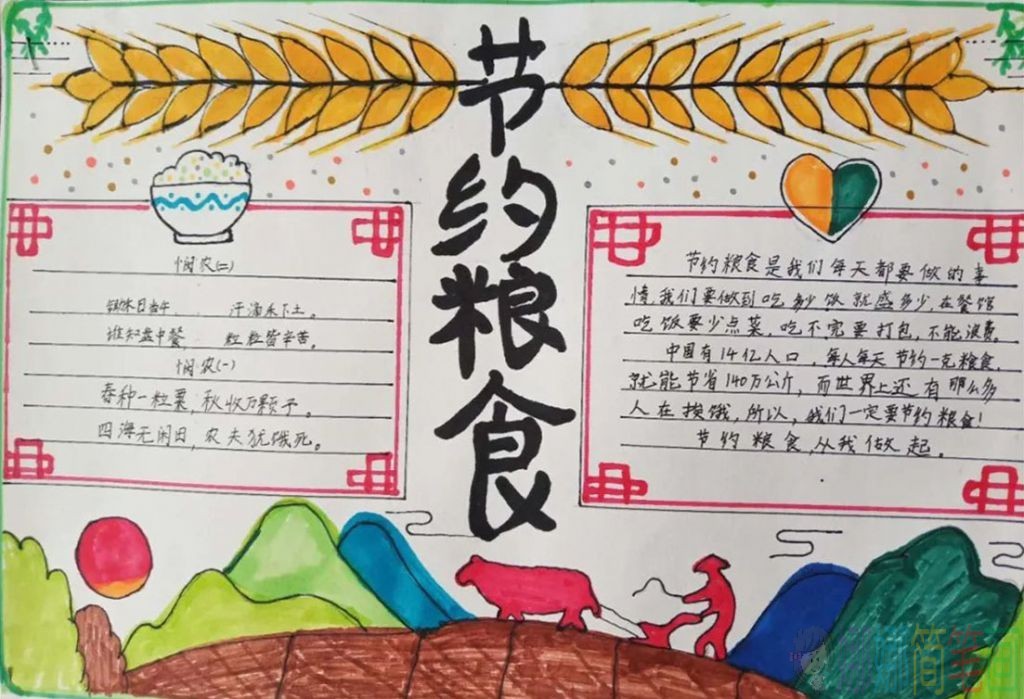 节约粮食
悯农(二)
锄禾日当午, 汗滴禾下土。
谁知盘中餐 粒粒皆辛苦。
悯农(一)
春种一粒粟,秋收万颗子。
四海无闲日,农夫犹饿死。
节约粮食是我们每天都要做的事
情,我们要做到吃多少饭就盛多少,在餐馆
吃饭要少点菜,吃不完要打包,不能浪费。
中国有14亿人口,每人每天节约一克粮食,
就能节省140万公斤,而世界上还有那么多
人在挨饿,所以,我们一定要节约粮食!
节约粮食,从我做起。